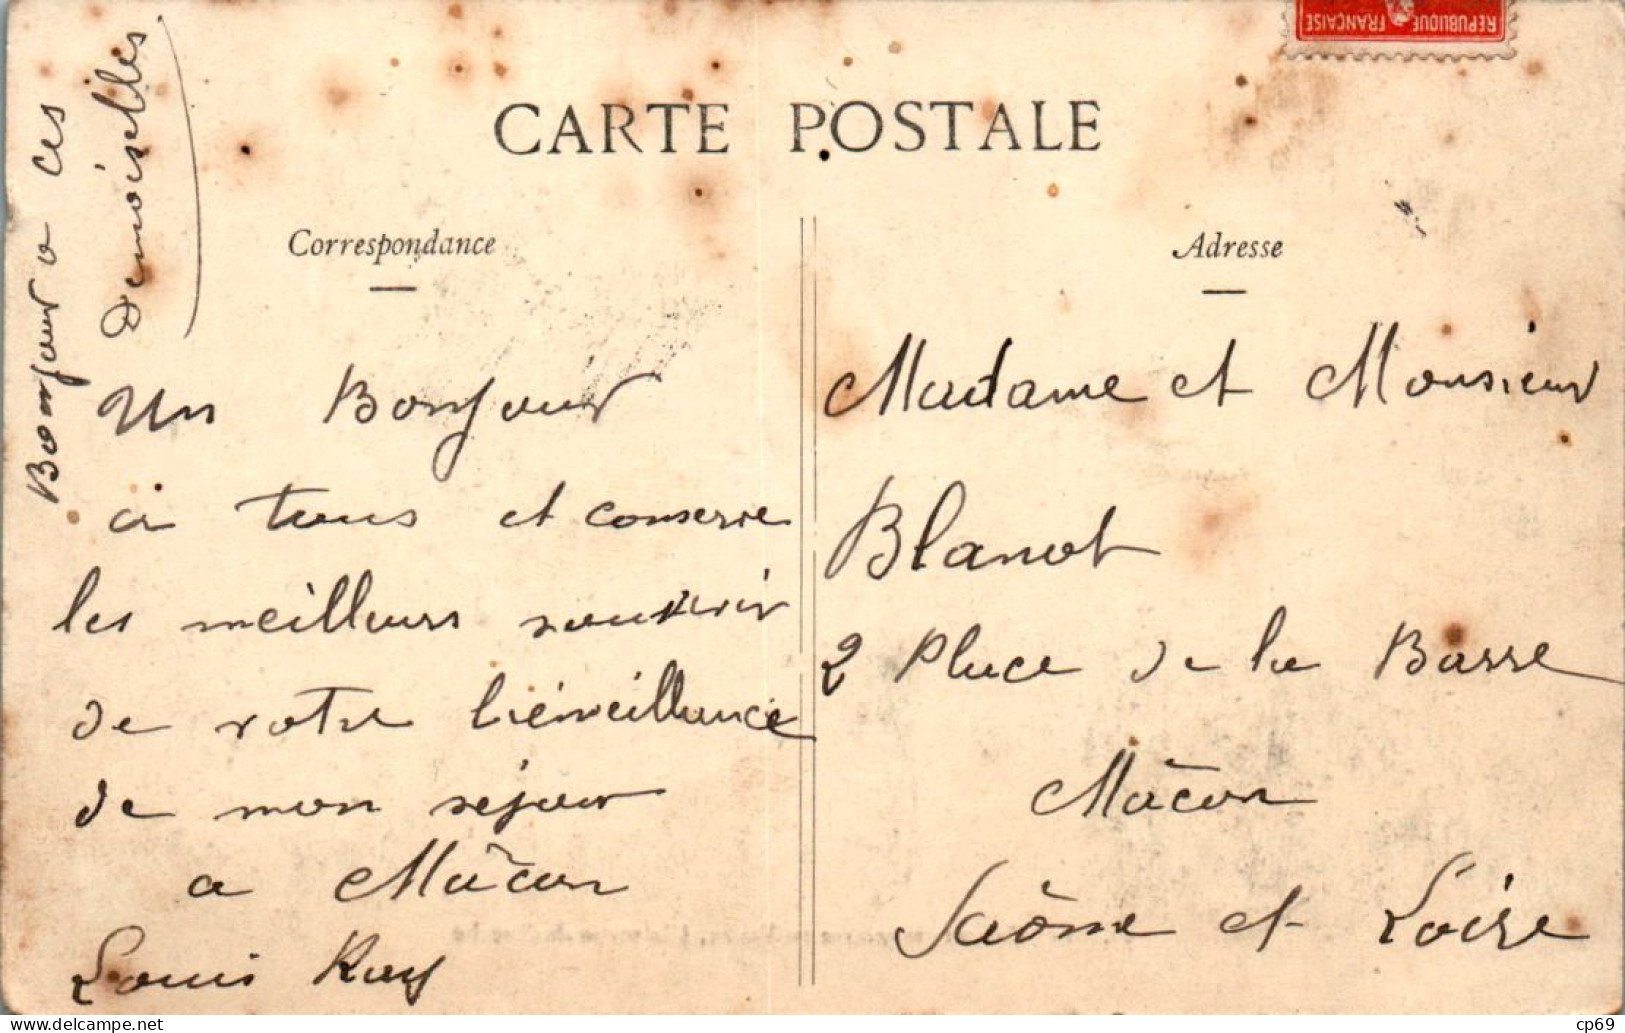 REPUBLIQUE FRANÇAISE
CARTE POSTALE
Correspondance
Adresse
Bonjour a ces
Demoiselles
Un Bonjour
à tous et conserve
les meilleurs souvenir
de votre bienveillance
de mon séjour
a Mâcon
Louis Ray
Madame et Monsieur
Blanot
2 Place de la Barre
Mâcon
Saône et Loire
delcampe.net
cp69